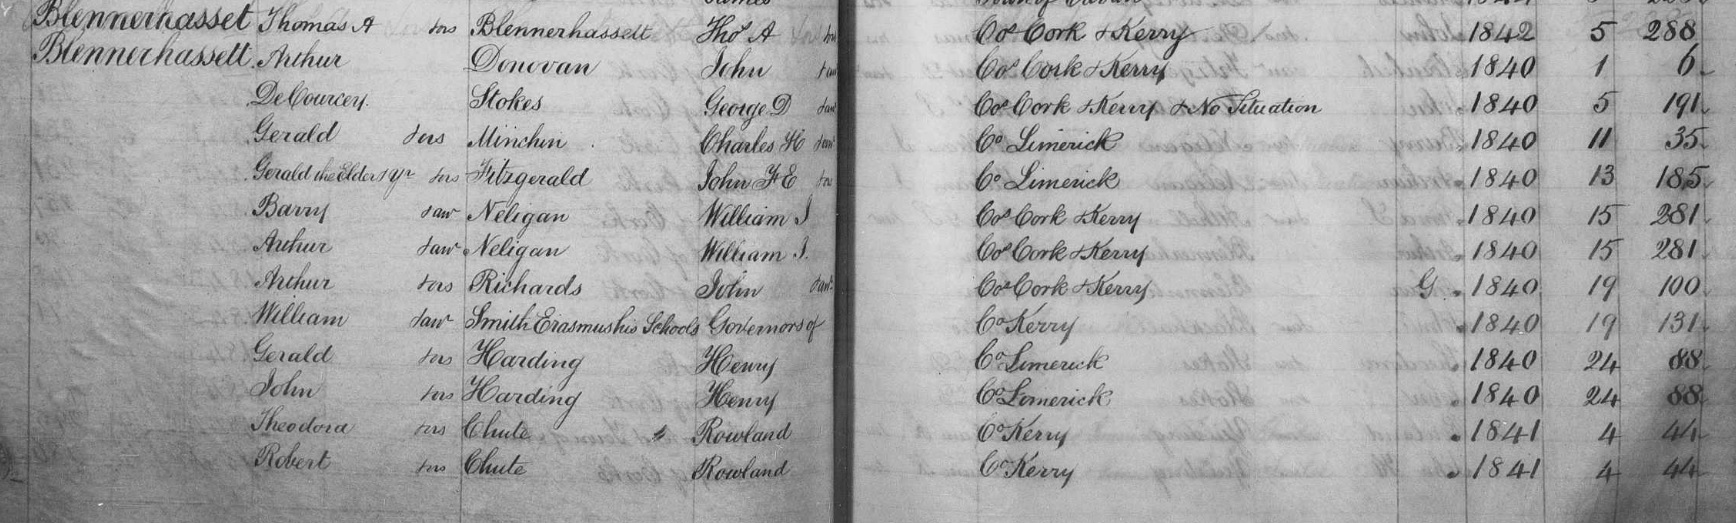 Blennerhasset Thomas A &ors Blennerhassett Thos A Cos Cork & Kerry 1842 5 288
Blennerhassett Arthur Donovan John Cos Cork & Kerry 1840 1 6
DeCourcey Stokes George D Cos Cork & Kerry & No Situation 1840 5 191
Gerald &ors Minchin Charles H Co Limerick 1840 11 35
Gerald the Elder & Yr &ors Fitzgerald John F E Co Limerick 1840 13 185
Barry &anr Neligan William J Cos Cork & Kerry 1840 15 281
Arthur &anr Neligan William J. Cos Cork & Kerry 1840 15 281
Arthur &ors Richards John &anr Cos Cork & Kerry G 1840 19 100
William &anr Smith Erasmus his Schools Governors of Co Kerry 1840 19 131
Gerald &ors Harding Henry Co Limerick 1840 24 88
John &ors Harding Henry Co Limerick 1840 24 88
Theodora &ors Chute Rowland Co Kerry 1841 4 44
Robert &ors Chute Rowland Co Kerry 1841 4 44